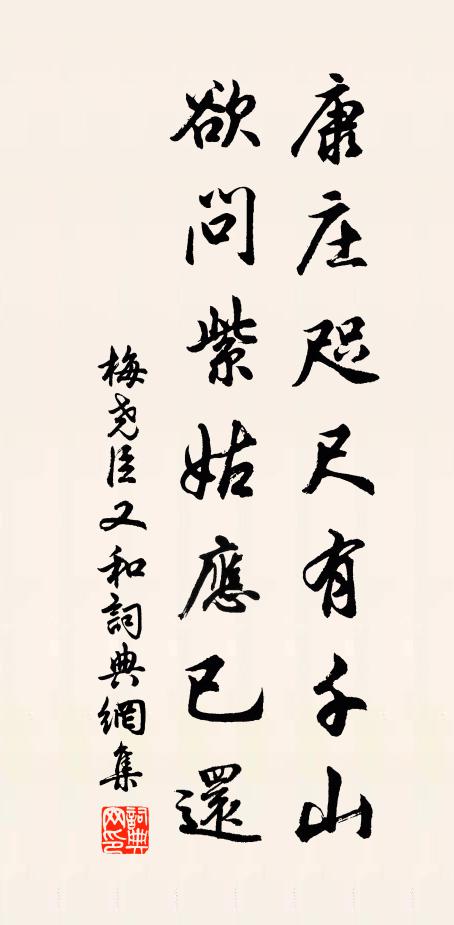 康庄咫尺有千山
欲問紫姑應已還
梅尧臣又和詞典網集
詞典網印